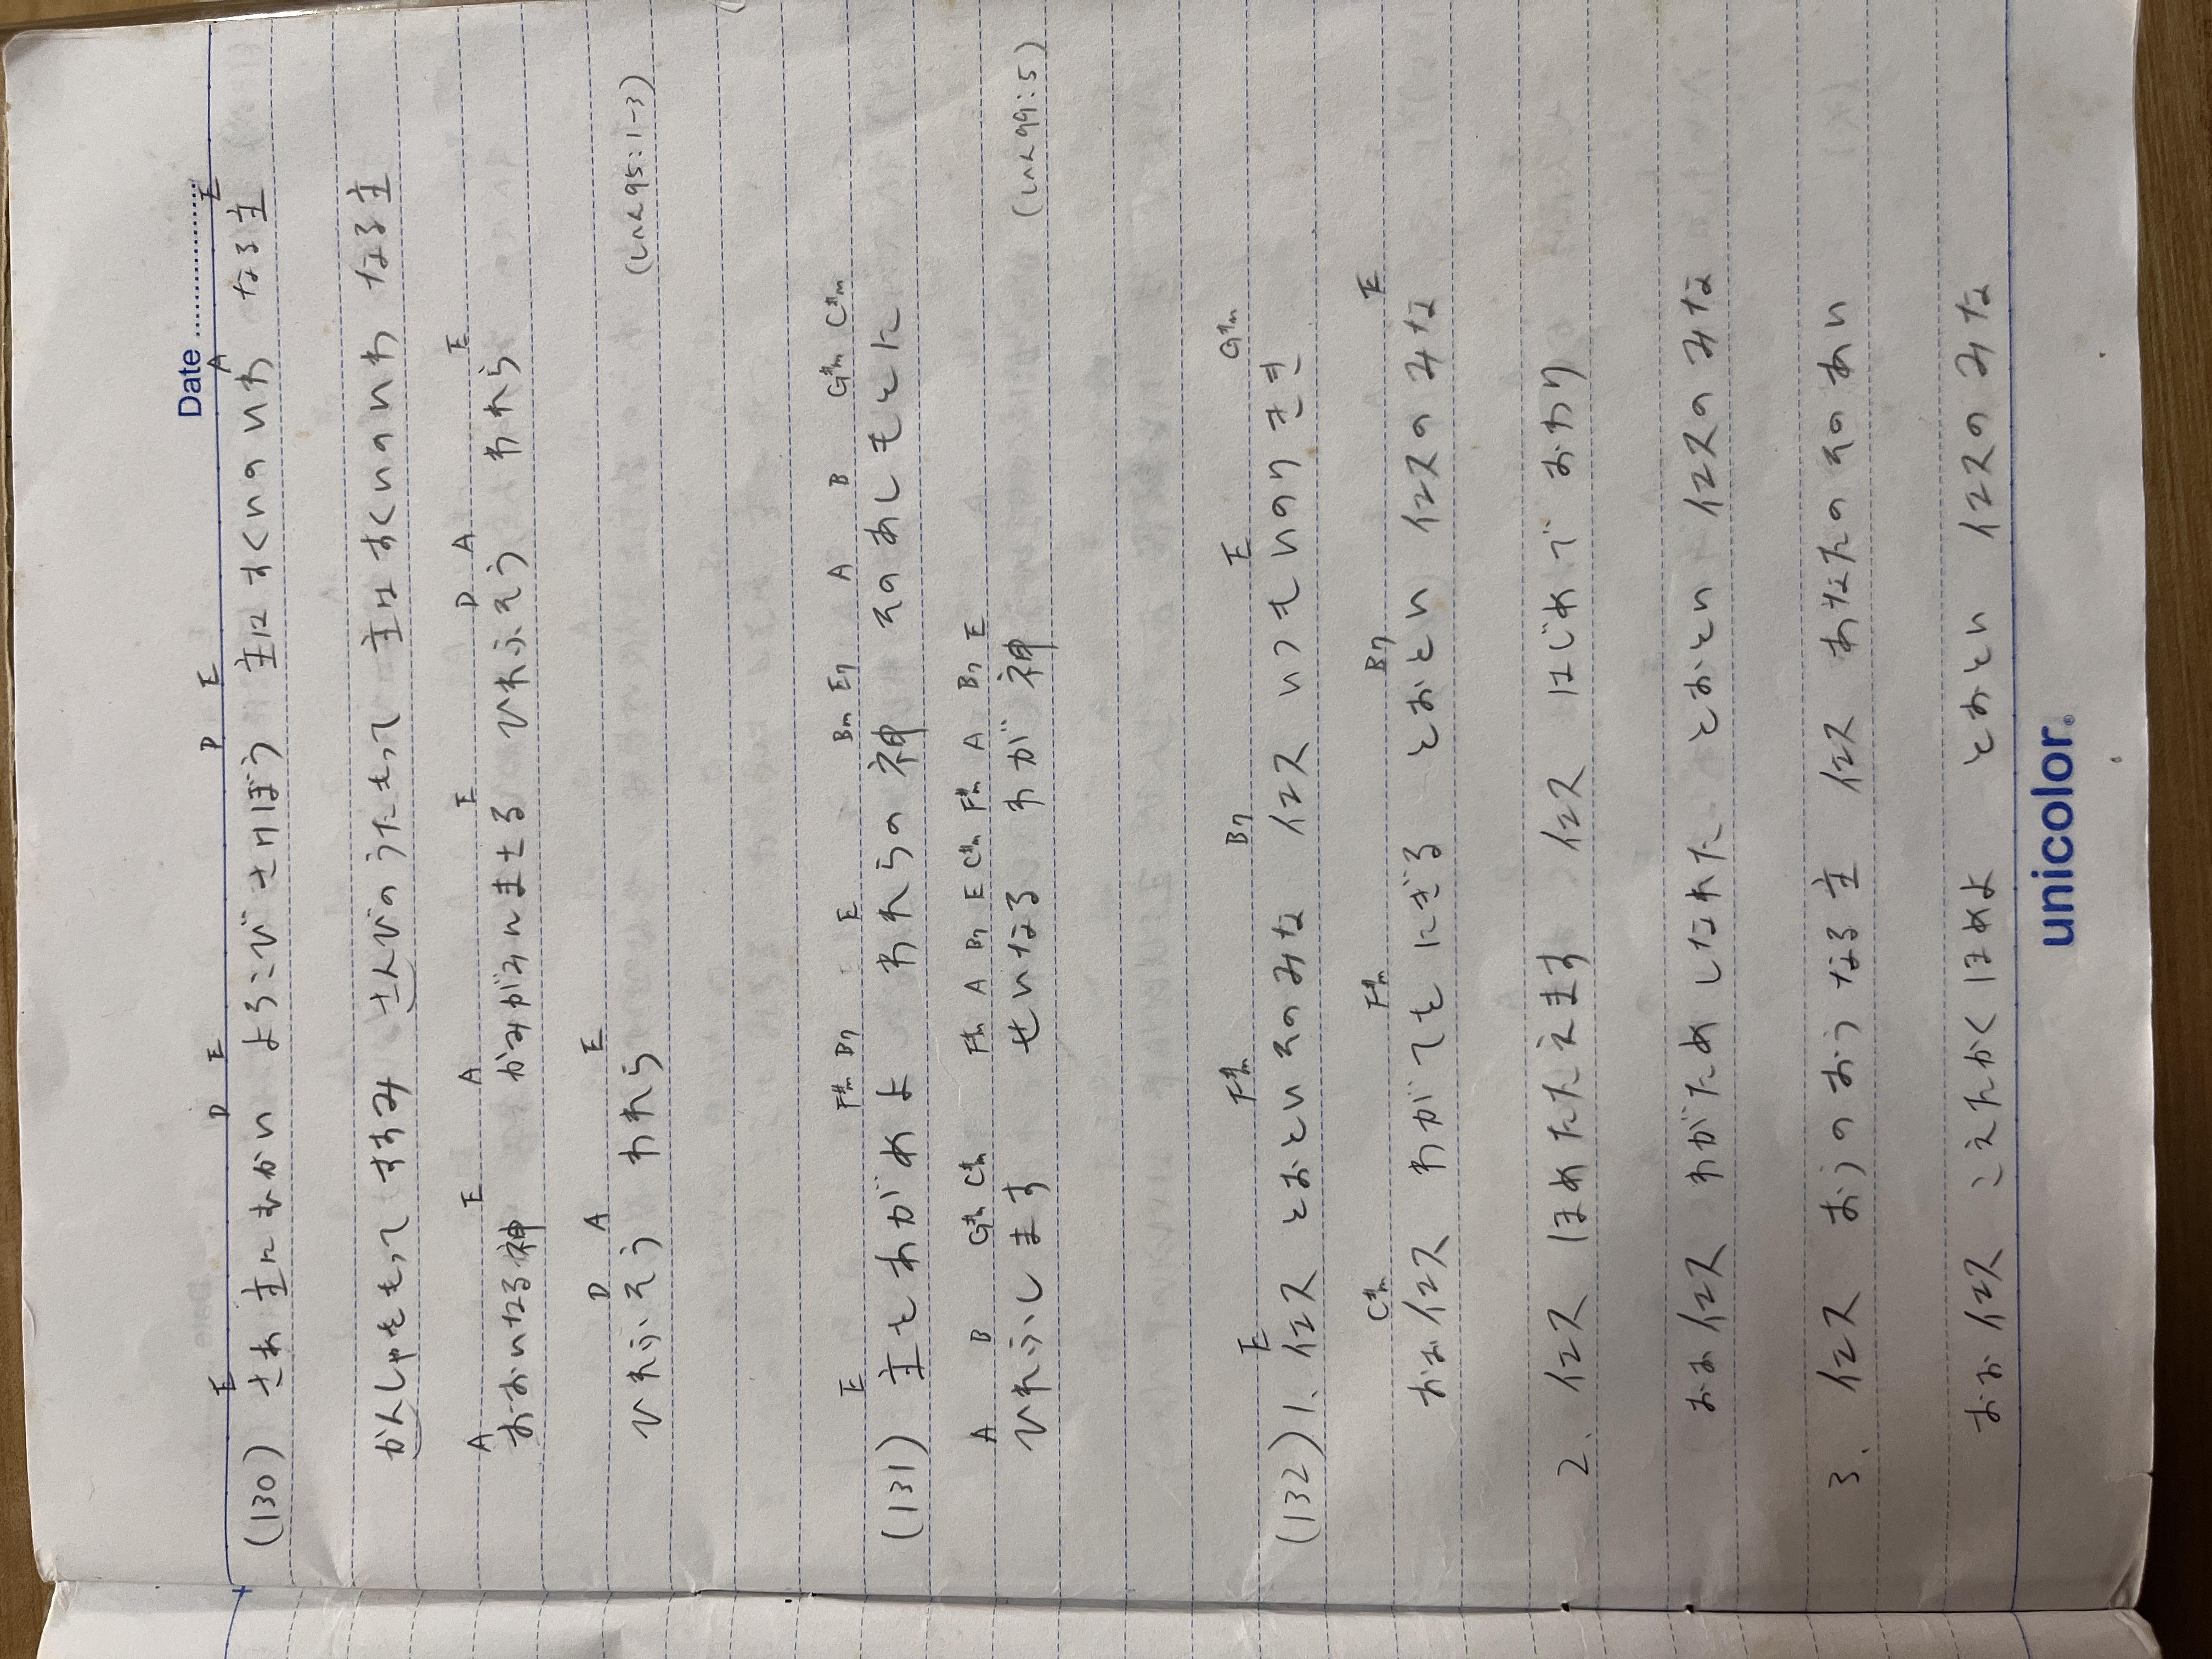 Date
E D E D E A E
(130) さあ 主にむかい よろこび さけぼう 主は すくいの いわ なる主
かんしゃをもって すすみ さんびの うたもって 主は すくいの いわ なる主
A E A E D A E
おおいなる神 かみがみにまさる ひれふそう われら
D A E
ひれふそう われら (しへん95:1-3)
E F#m B7 E Bm E7 A B G#m C#m
(131) 主をあがめよ われらの神 そのあしもとに
A B G#m C#m F#m A B7 E C#m F#m A B7 E
ひれふします せいなる わが神 (しへん99:5)
E F#m B7 E G#m
(132) 1. イエス とおといそのみな イエス いつもいのりきき
C#m F#m B7 E
おおイエス わがてを にぎる とおとい イエスのみな
2. イエス ほめたたえます イエス はじめで おわり
おおイエス わがため しなれた とおとい イエスのみな
3. イエス おうのおうなる主 イエス あなたのそのあい
おおイエス こえたかくほめよ とおとい イエスのみな
unicolor®